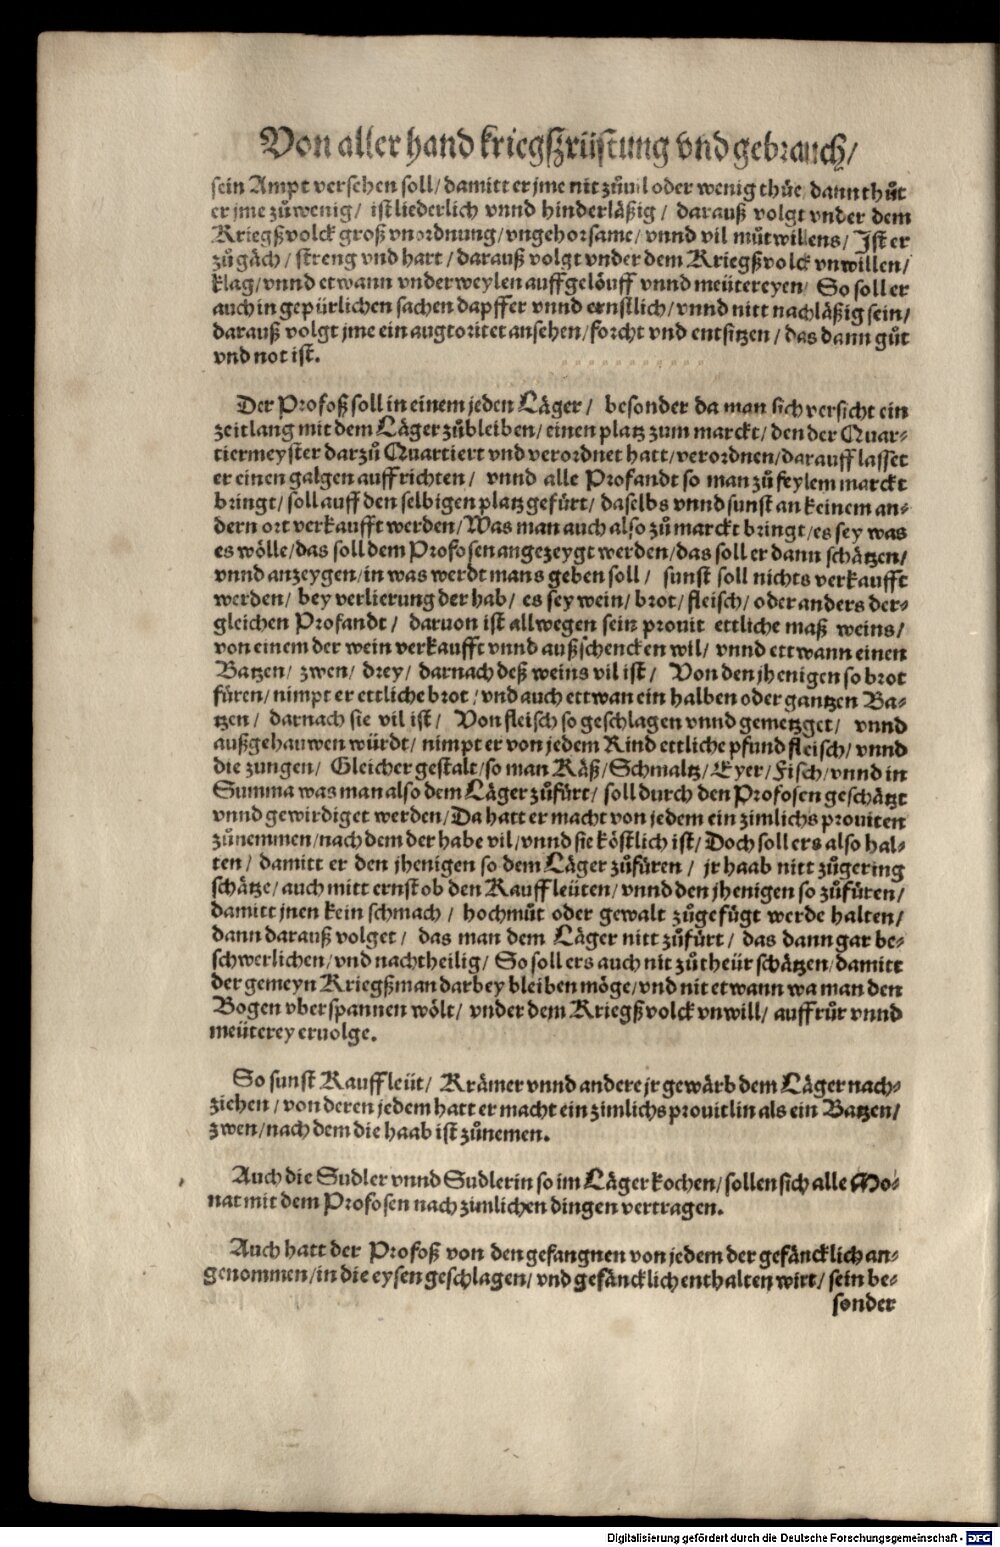 Von aller hand kriegßrüstung vnd gebrauch/
sein Ampt versehen soll/ damitt er jme nit zůuil oder wenig thůe/ dann thůt
er jme zů wenig/ ist liederlich vnnd hinderläßig/ darauß volgt vnder dem
Kriegßvolck groß vnordnung/ vngehorsame/ vnnd vil můtwillens/ Ist er
zů gäch/ streng vnd hart/ darauß volgt vnder dem Kriegßvolck vnwillen/
klag/ vnnd etwann vnderweylen auffgelöuff vnnd meütereyen/ So soll er
auch in gepürlichen sachen dapffer vnnd ernstlich/ vnnd nitt nachläßig sein/
darauß volgt jme ein augtoritet ansehen/ forcht vnd entsitzen/ das dann gůt
vnd not ist.
Der Profoß soll in einem jeden Läger/ besonder da man sich versicht ein
zeitlang mit dem Läger zůbleiben/ einen platz zum marckt/ den der Quar-
tiermeyster darzů Quartiert vnd verordnet hatt/ verordnen/ darauff lasset
er einen galgen auffrichten/ vnnd alle Profandt so man zů feylem marckt
bringt/ soll auff den selbigen platz gefürt/ daselbs vnnd sunst an keinem an-
dern ort verkaufft werden/ Was man auch also zů marckt bringt/ es sey was
es wölle/ das soll dem Profosen angezeygt werden/ das soll er dann schätzen/
vnnd anzeygen/ in was werdt mans geben soll/ sunst soll nichts verkaufft
werden/ bey verlierung der hab/ es sey wein/ brot/ fleisch/ oder anders der-
gleichen Profandt/ daruon ist allwegen sein prouit ettliche maß weins/
von einem der wein verkaufft vnnd außschencken wil/ vnnd ettwann einen
Batzen/ zwen/ drey/ darnach deß weins vil ist/ Von den jhenigen so brot
füren/ nimpt er ettliche brot/ vnd auch ettwan ein halben oder gantzen Ba-
tzen/ darnach sie vil ist/ Von fleisch so geschlagen vnnd gemetzget/ vnnd
außgehauwen würdt/ nimpt er von jedem Rind ettliche pfund fleisch/ vnnd
die zungen/ Gleicher gestalt/ so man Käß/ Schmaltz/ Eyer/ Fisch/ vnnd in
Summa was man also dem Läger zůfürt/ soll durch den Profosen geschätzt
vnnd gewirdiget werden/ Da hatt er macht von jedem ein zimlichs prouiten
zůnemmen/ nach dem der habe vil/ vnnd sie köstlich ist/ Doch soll ers also hal-
ten/ damitt er den jhenigen so dem Läger zůfüren/ jr haab nitt zůgering
schätze/ auch mitt ernst ob den Kauffleüten/ vnnd den jhenigen so zůfüren/
damitt jnen kein schmach/ hochmůt oder gewalt zůgefügt werde halten/
dann darauß volget/ das man dem Läger nitt zůfürt/ das dann gar be-
schwerlichen/ vnd nachtheilig/ So soll ers auch nit zů theür schätzen/ damitt
der gemeyn Kriegßman darbey bleiben möge/ vnd nit etwann wa man den
Bogen vberspannen wölt/ vnder dem Kriegßvolck vnwill/ auffrůr vnnd
meüterey eruolge.
So sunst Kauffleüt/ Krämer vnnd andere jr gewärb dem Läger nach-
ziehen/ von deren jedem hatt er macht ein zimlichs prouitlin als ein Batzen/
zwen/ nach dem die haab ist zůnemen.
Auch die Sudler vnnd Sudlerin so im Läger kochen/ sollen sich alle Mo-
nat mit dem Profosen nach zimlichen dingen vertragen.
Auch hatt der Profoß von den gefangnen von jedem der gefäncklich an-
genommen/ in die eysen geschlagen/ vnd gefäncklich enthalten wirt/ sein be-
sonder
Digitalisierung gefördert durch die Deutsche Forschungsgemeinschaft - DFG